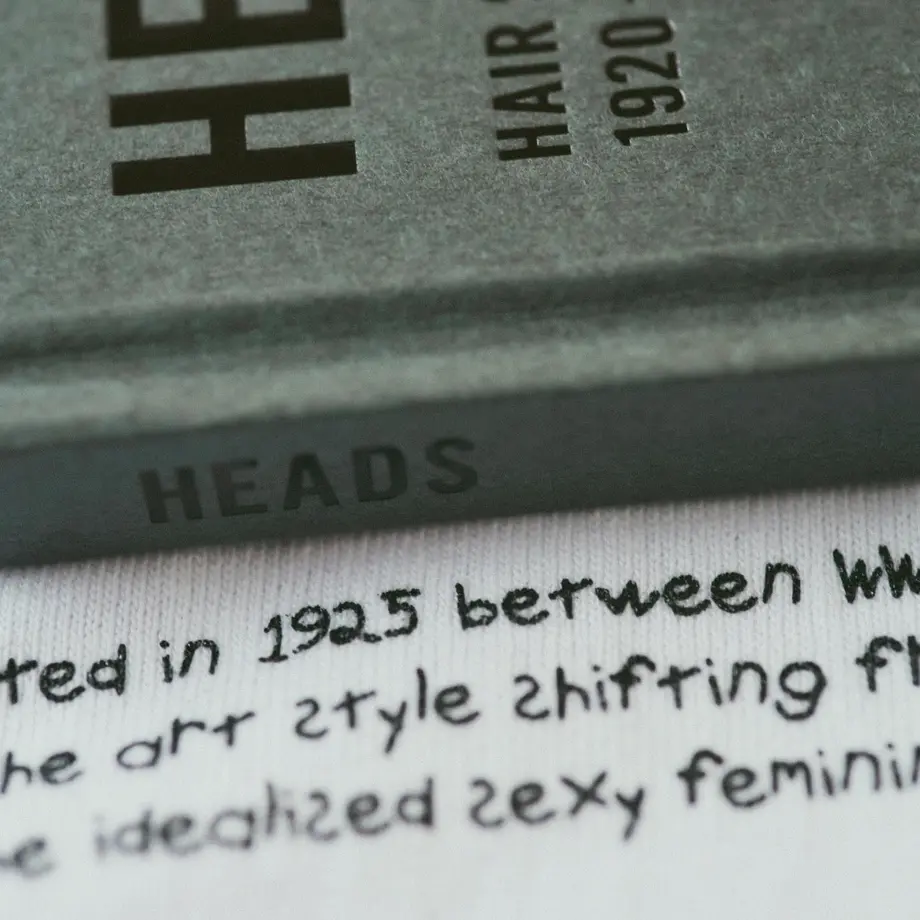 HE
HAIR
1920
HEADS
ted in 1925 between WW
he art style shifting fr
e idealized sexy feminin